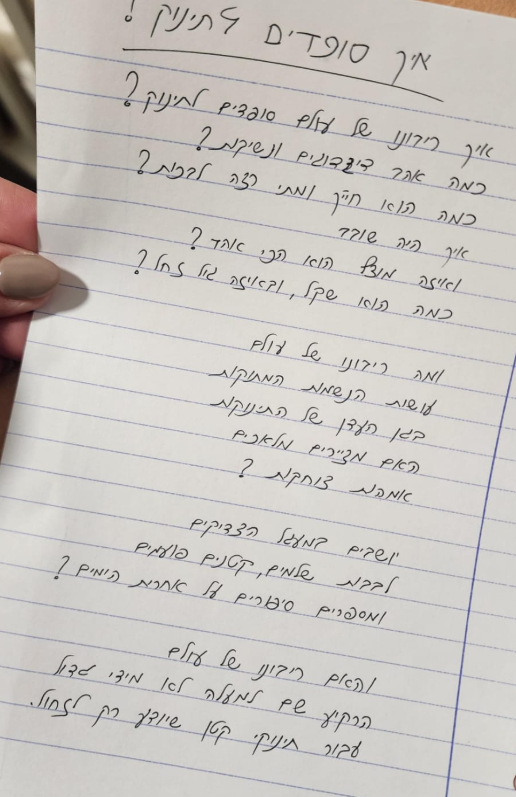 איך סופדים לתינוק?
איך ריבונו של עולם סופדים לתינוק?
כמה אהב דיגדוגים ונשיקות?
כמה הוא חייך ומתי רצה לבכות?
איך היה שוכב
ואיזה מוצץ הוא הכי אהב?
כמה הוא שקל, ובאיזה גיל זחל?
ומה ריבונו של עולם
עושות הנשמות המתוקות
בגן העדן של התינוקות
האם מציירים מלאכים
אמהות צוחקות?
יושבים במעגל הצדיקים
לבבות שלמים, קטנים פועמים
ומספרים סיפורים על אחרית הימים?
והאם ריבונו של עולם
הרקיע שם למעלה לא מידי גדול
עבור תינוקי קטן שיודע רק לזחול.